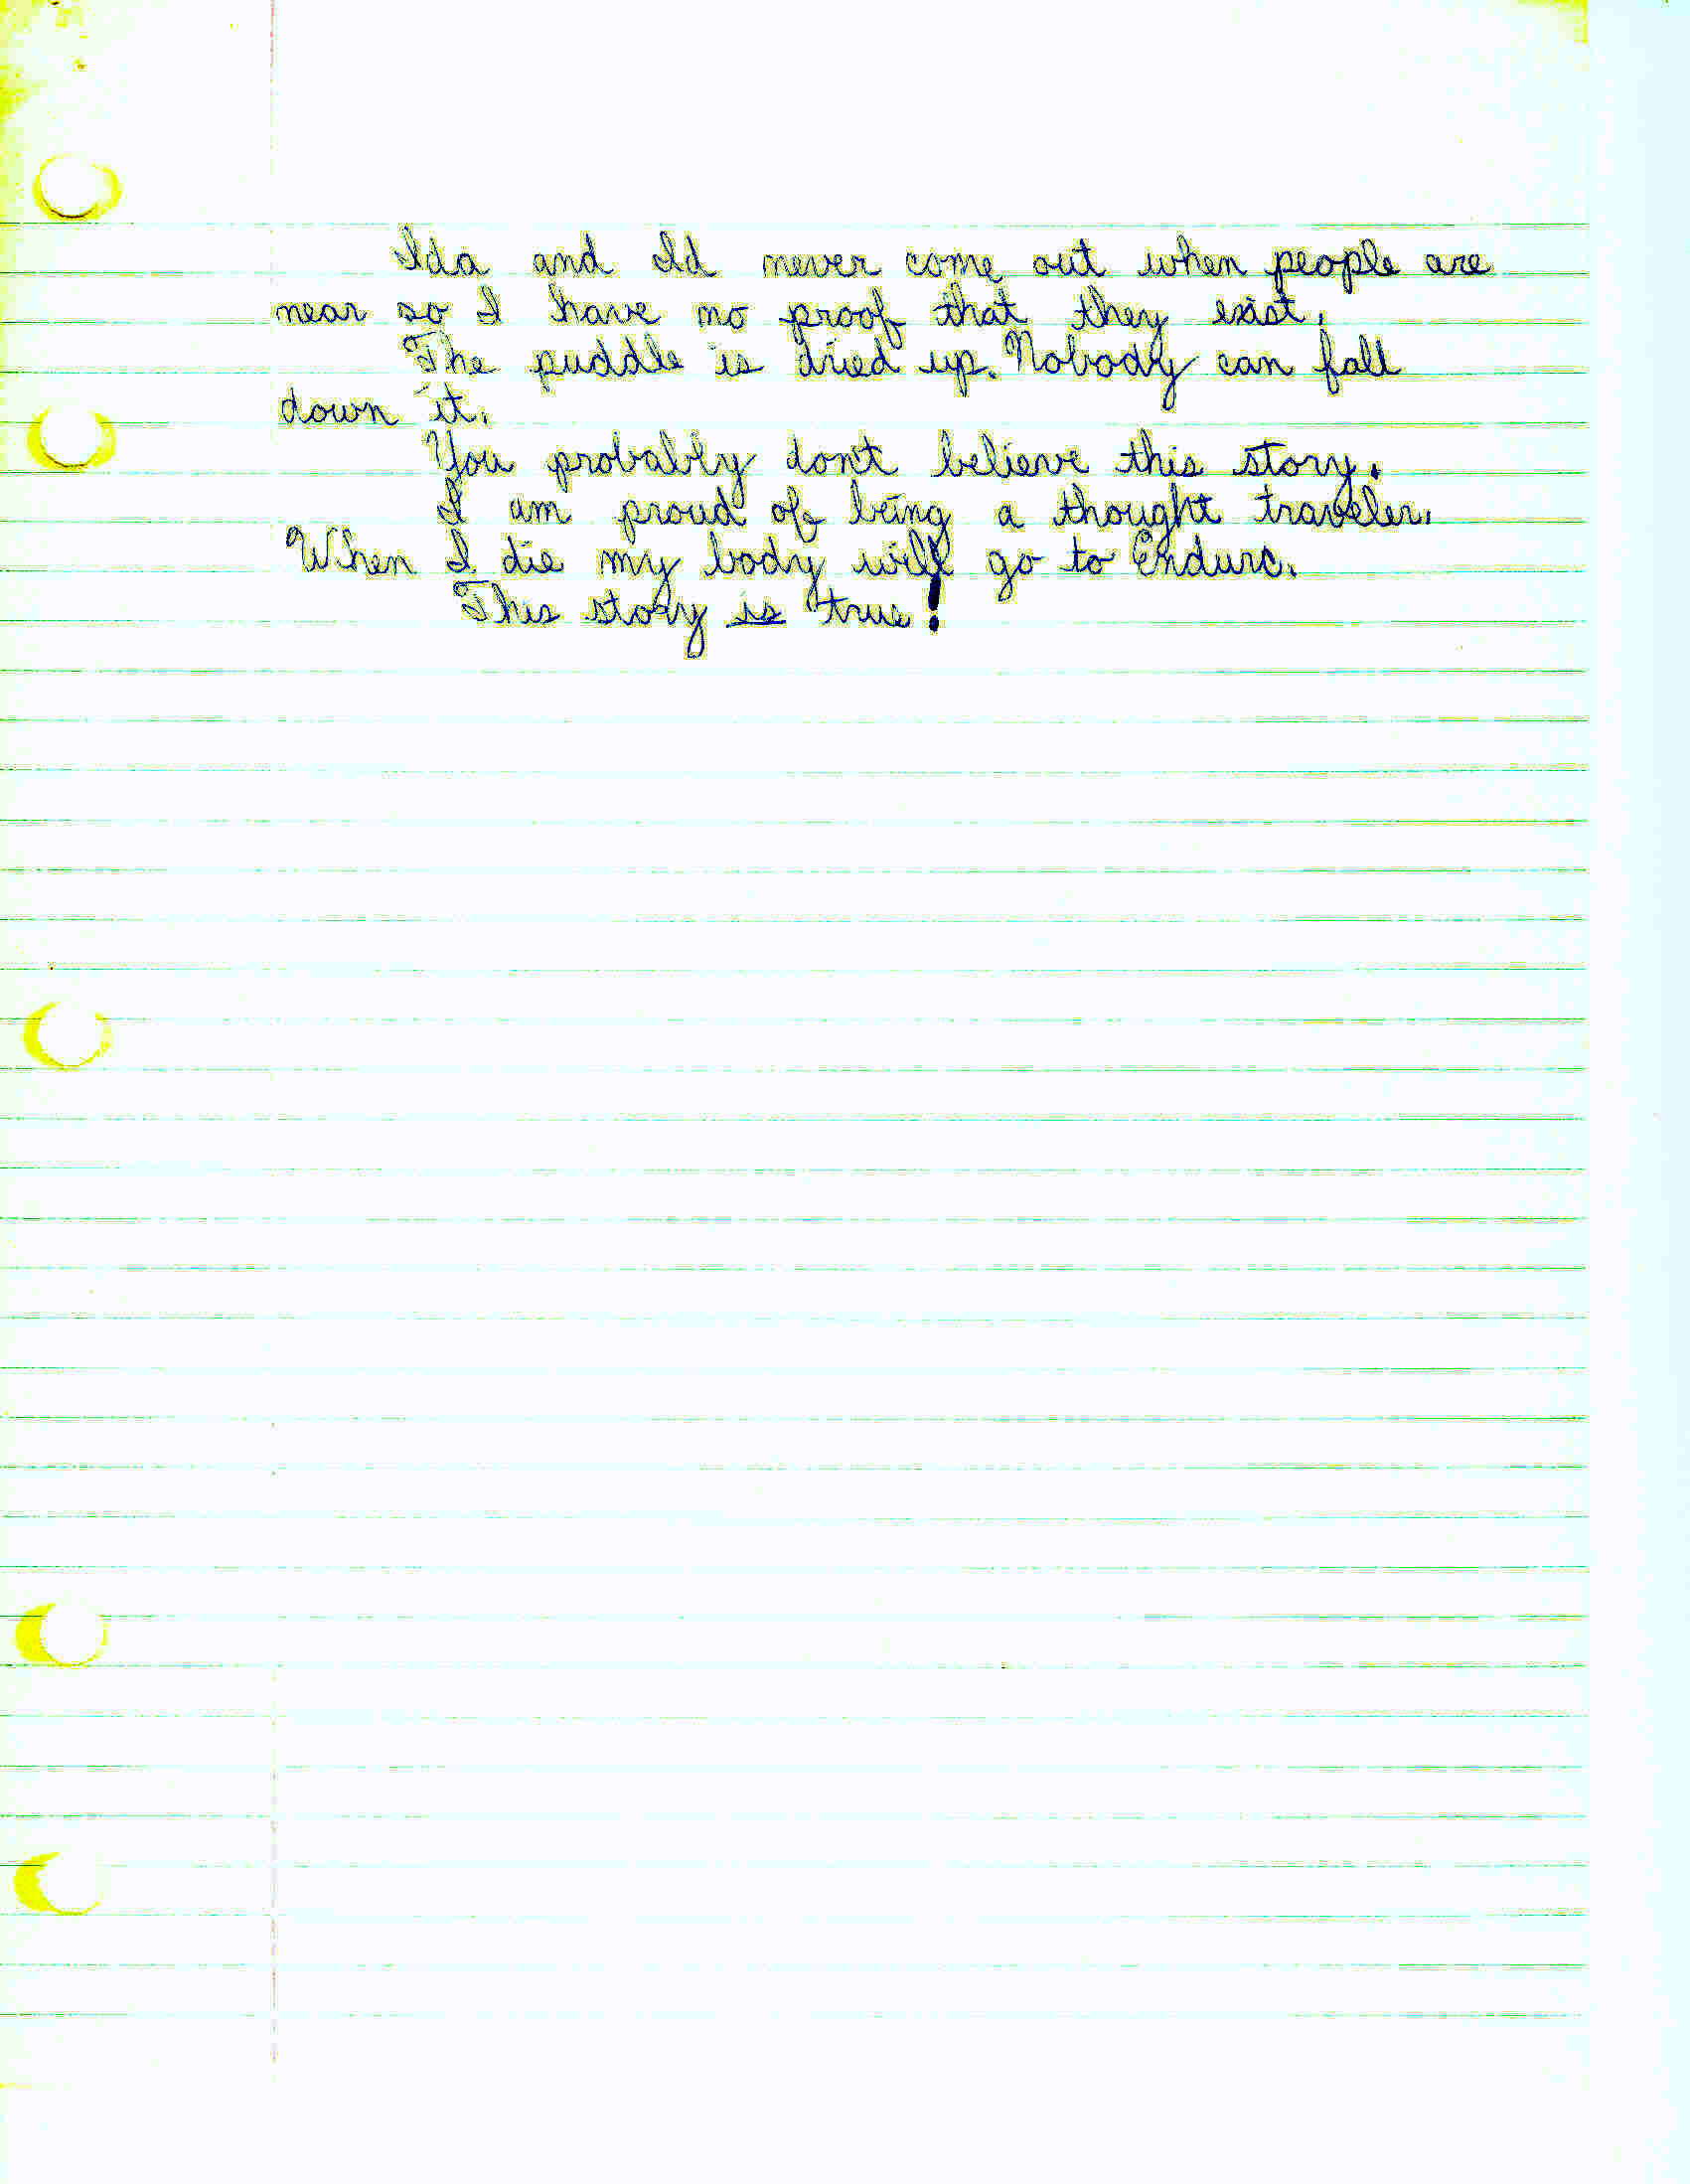 Ida and Id never come out when people are
near so I have no proof that they exist.
The puddle is dried up. Nobody can fall
down it.
You probably dont believe this story.
I am proud of being a thought traveler.
When I die my body will go to Endurc.
This story is true!